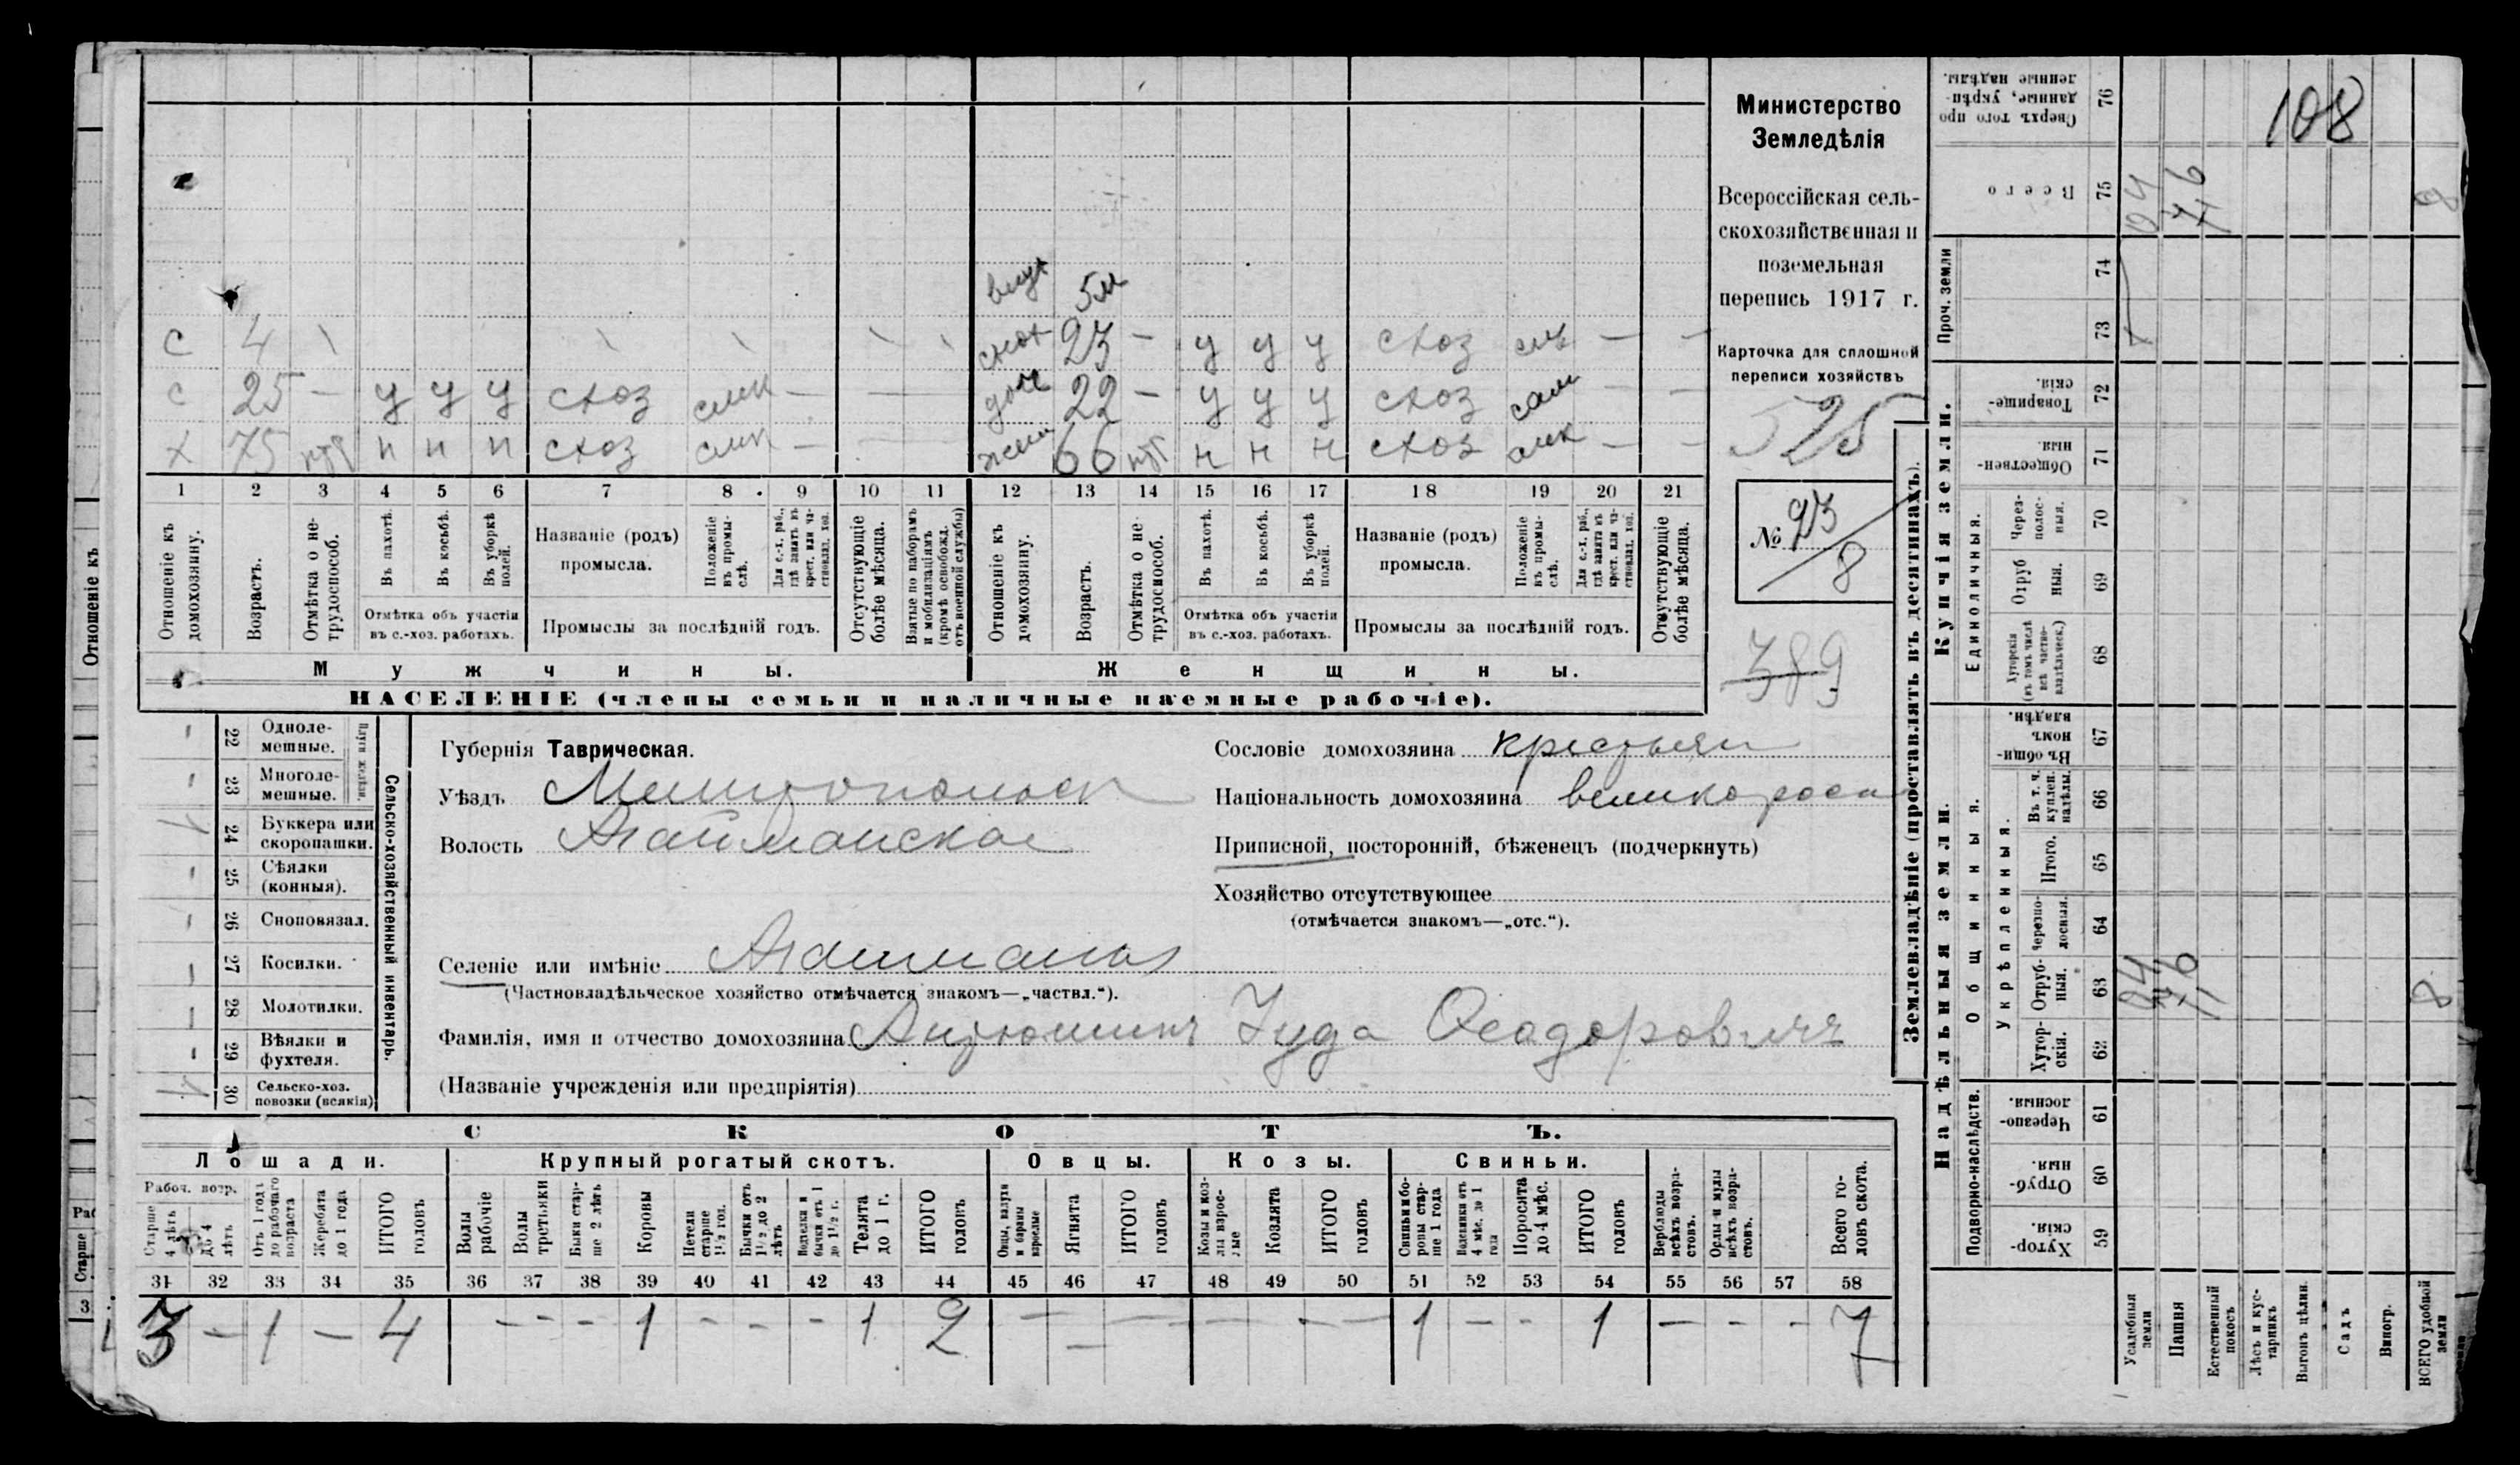 Отношеніе къ
Министерство
Земледѣлія
Всероссійская сель-
скохозяйственная и
поземельная
перепись 1917 г.
Карточка для сплошной
переписи хозяйствъ
525
№ 23/8
389
108
внук 5м
с 4 \ \ \ \ \ снох 23 — у у у схоз — —
с 25 — у у у схоз — — доч 22 — у у у схоз — —
х 75 н н н схоз — — жена 66 н н н схоз — —
1 2 3 4 5 6 7 8 9 10 11 12 13 14 15 16 17 18 19 20 21
Отношеніе къ домохозяину.
Возрастъ.
Отмѣтка о не-трудоспособ.
Въ пахотѣ.
Въ косьбѣ.
Въ уборкѣ полей.
Отмѣтка объ участіи въ с.-хоз. работахъ.
Названіе (родъ) промысла.
Положеніе въ промы-слѣ.
Для с.-х. раб., гдѣ занятъ въ крест. или ча-стновлад. хоз.
Промыслы за послѣдній годъ.
Отсутствующіе болѣе мѣсяца.
Взятые по наборамъ и мобилизаціямъ (кромѣ освобожд. отъ военной службы)
Отношеніе къ домохозяину.
Возрастъ.
Отмѣтка о не-трудоспособ.
Въ пахотѣ.
Въ косьбѣ.
Въ уборкѣ полей.
Отмѣтка объ участіи въ с.-хоз. работахъ.
Названіе (родъ) промысла.
Положеніе въ промы-слѣ.
Для с.-х. раб., гдѣ занята въ крест. или ча-стновлад. хоз.
Промыслы за послѣдній годъ.
Отсутствующіе болѣе мѣсяца.
Мужчины. Женщины.
НАСЕЛЕНІЕ (члены семьи и наличные наемные рабочіе).
Сельско-хозяйственный инвентарь.
Плуги желѣзн.
— 22 Одноле-мешные.
— 23 Многоле-мешные.
1 24 Буккера или скоропашки.
— 25 Сѣялки (конныя).
— 26 Сноповязал.
— 27 Косилки.
— 28 Молотилки.
— 29 Вѣялки и фухтеля.
1 30 Сельско-хоз. повозки (всякія)
Губернія Таврическая.
Уѣздъ Мелитопольск
Волость Агайманская
Селеніе или имѣніе Агайманъ
(Частновладѣльческое хозяйство отмѣчается знакомъ—„частвл.“).
Фамилія, имя и отчество домохозяина Антюшинъ Іуда Ѳеодоровичъ
(Названіе учрежденія или предпріятія)
Сословіе домохозяина крестьян
Національность домохозяина великоросс
Приписной, посторонній, бѣженецъ (подчеркнуть)
Хозяйство отсутствующее
(отмѣчается знакомъ—„отс.“).
СКОТЪ.
Лошади. Крупный рогатый скотъ. Овцы. Козы. Свиньи.
Рабоч. возр.
Старше 4 лѣтъ
до 4 лѣтъ
Отъ 1 года до рабочаго возраста
Жеребята до 1 года
ИТОГО головъ
Волы рабочіе
Волы третьяки
Быки стар-ше 2 лѣтъ
Коровы
Нетели старше 1½ год.
Бычки отъ 1½ до 2 лѣтъ
Подтелки и бычки отъ 1 до 1½ г.
Телята до 1 г.
ИТОГО головъ
Овцы, валухи и бараны взрослые
Ягнята
ИТОГО головъ
Козы и коз-лы взрос-лые
Козлята
ИТОГО головъ
Свиньи и бо-ровы стар-ше 1 года
Подсвинки отъ 4 мѣс. до 1 года
Поросята до 4 мѣс.
ИТОГО головъ
Верблюды всѣхъ возра-стовъ.
Ослы и мулы всѣхъ возра-стовъ.
Всего го-ловъ скота.
31 32 33 34 35 36 37 38 39 40 41 42 43 44 45 46 47 48 49 50 51 52 53 54 55 56 57 58
3 — 1 — 4 — — — 1 — — — 1 2 — — — — — — 1 — — 1 — — — 7
Землевладѣніе (проставлять въ десятинахъ).
Купчія земли.
Надѣльныя земли.
Сверхъ того про данные, укрѣп-ленные надѣлы. 76
Всего 75 04 7,46 8
Проч. земли 74 73
Товарище-скія. 72
Обществен-ныя. 71
Единоличныя.
Через-полос-ныя. 70
Отруб ныя. 69
Хуторскія (въ томъ числѣ всѣ частно-владѣльческ.) 68
Общинныя.
Въ общин-номъ владѣн. 67
Укрѣпленныя.
Въ т. ч. куплен. надѣлы. 66
Итого. 65
Черезпо-лосныя. 64
Отруб-ныя. 63 8
Хутор-скія. 62
Подворно-наслѣдств.
Черезпо-лосныя. 61
Отруб-ныя. 60
Хутор-скія. 59
Усадебныя земли
Пашня
Естественный покосъ
Лѣсъ и кус-тарникъ
Выгонъ цѣлин.
Садъ
Виногр.
ВСЕГО удобной земли